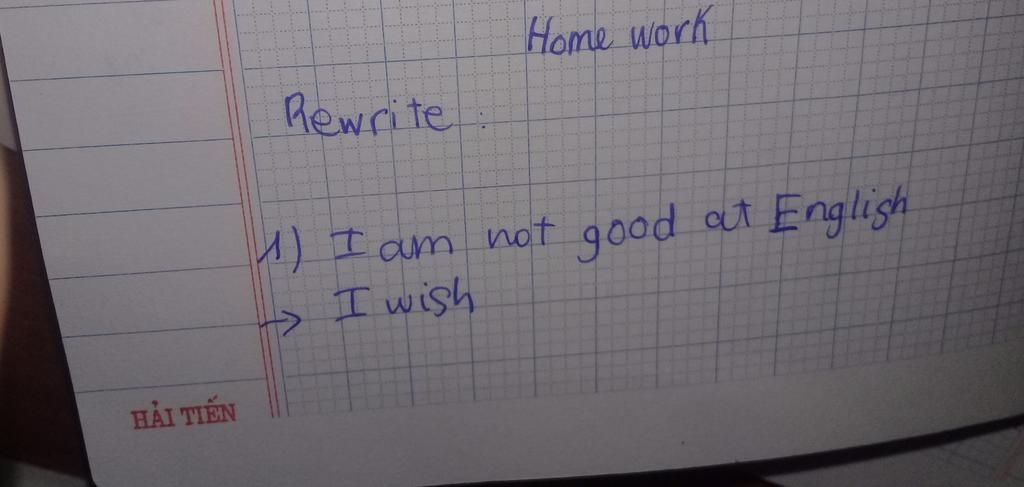 Home work
Rewrite :
1) I am not good at English
→ I wish
HẢI TIẾN